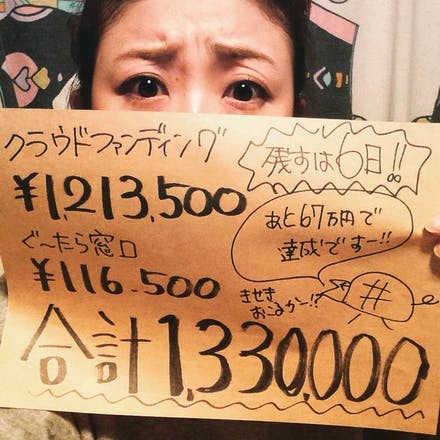 クラウドファンディング
¥1,213,500
ぐ〜たら窓口
¥116.500
合計1,330,000
残すは6日!!
あと67万円で
達成ですー!!
きせき
おこるかー!?
#